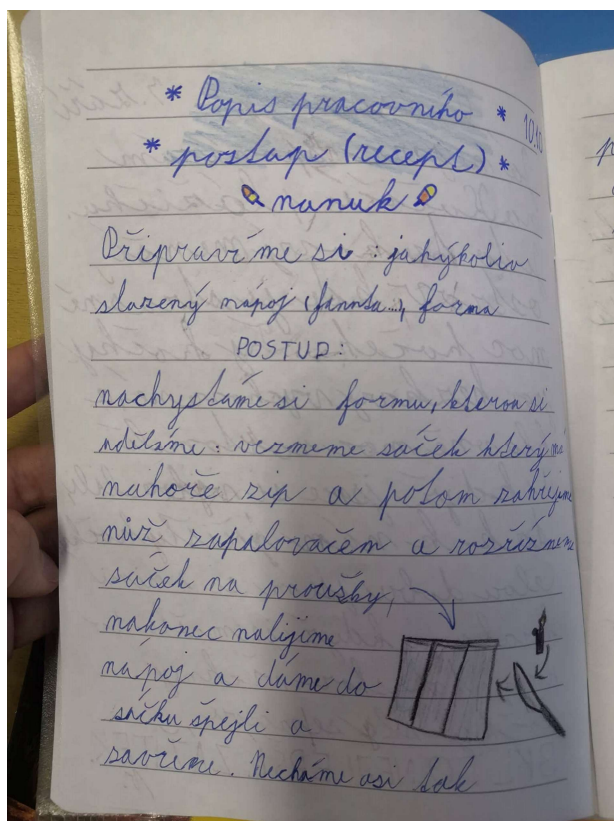 * Popis pracovního *
10.10
* postup (recept) *
nanuk
Připravíme si : jakýkoliv
slazený nápoj (fannta...), forma
POSTUP:
nachystáme si formu, kterou si
uděláme : vezmeme sáček který má
nahoře zip a potom zahřejeme
nůž zapalovačem a rozřízneme
sáček na proužky,
nakonec nalijime
nápoj a dáme do
sáčku špejli a
zavřeme. Necháme asi tak